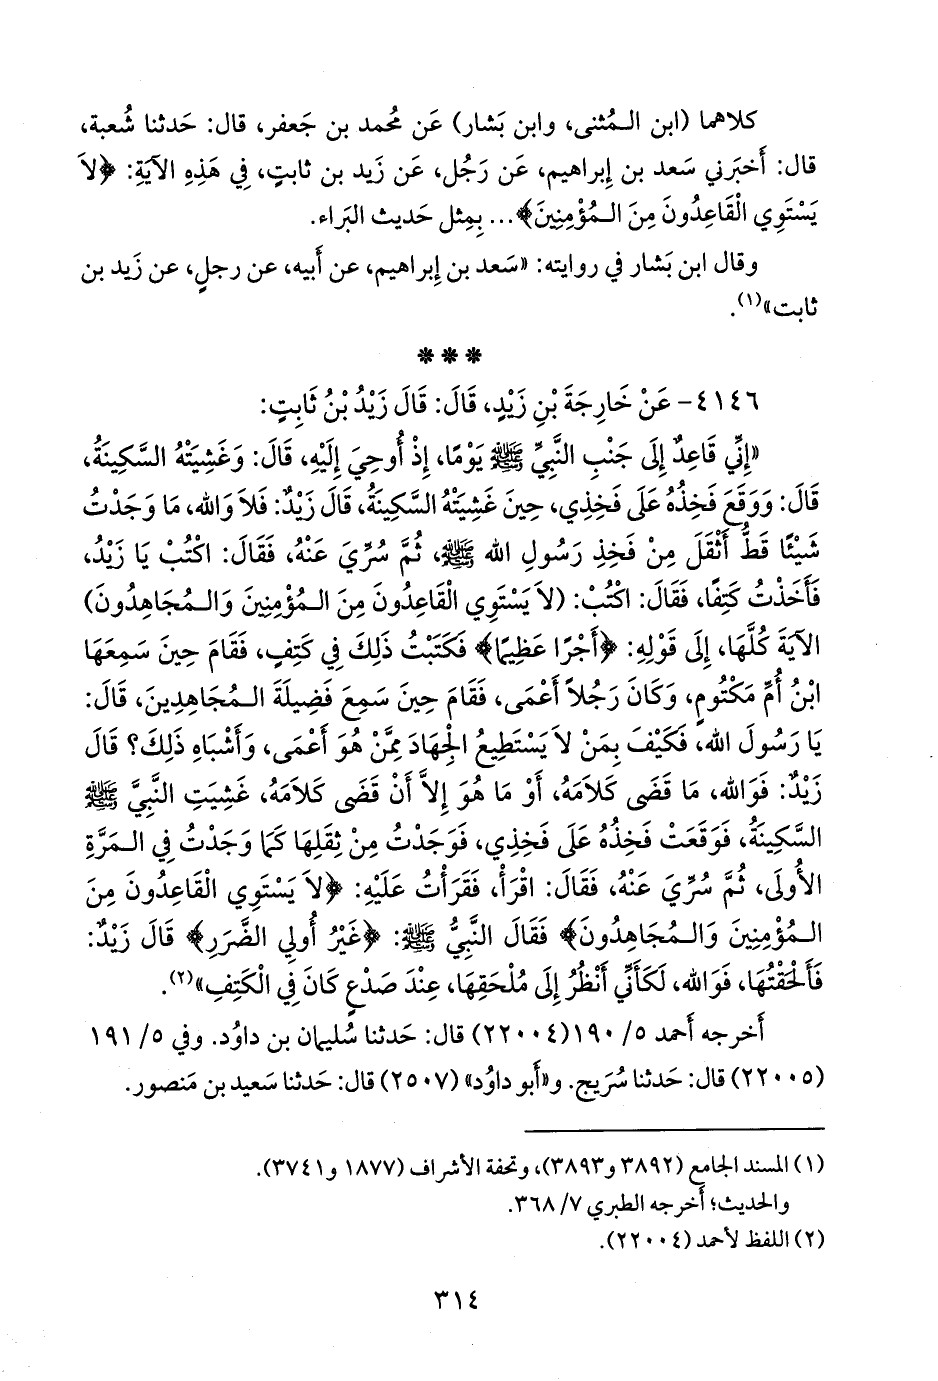 كلاهما (ابن المُثنى، وابن بَشار) عَن مُحمد بن جَعفر، قال: حَدثنا شُعبة،
قال: أَخبَرني سَعد بن إِبراهيم، عَن رَجُل، عَن زَيد بن ثابتٍ، فِي هَذِهِ الآيَةِ: ﴿لاَ
يَسْتَوِي الْقَاعِدُونَ مِنَ المُؤْمِنِينَ﴾... بِمِثل حَديث البَراء.
وقال ابن بَشار في روايته: «سَعد بن إِبراهيم، عن أَبيه، عن رجلٍ، عن زَيد بن
ثابت»(١).
***
٤١٤٦- عَنْ خَارِجَةَ بْنِ زَيْدٍ، قَالَ: قَالَ زَيْدُ بْنُ ثَابِتٍ:
«إِنِّي قَاعِدٌ إِلَى جَنْبِ النَّبِيِّ ﷺ يَوْمًا، إِذْ أُوحِيَ إِلَيْهِ، قَالَ: وَغَشِيَتْهُ السَّكِينَةُ،
قَالَ: وَوَقَعَ فَخِذُهُ عَلَى فَخِذِي، حِينَ غَشِيَتْهُ السَّكِينَةُ، قَالَ زَيْدٌ: فَلاَ وَالله، مَا وَجَدْتُ
شَيْئًا قَطُّ أَثْقَلَ مِنْ فَخِذِ رَسُولِ الله ﷺ، ثُمَّ سُرِّيَ عَنْهُ، فَقَالَ: اكْتُبْ يَا زَيْدُ،
فَأَخَذْتُ كَتِفًا، فَقَالَ: اكْتُبْ: (لاَ يَسْتَوِي الْقَاعِدُونَ مِنَ المُؤْمِنِينَ وَالمُجَاهِدُونَ)
الآيَةَ كُلَّهَا، إِلَى قَوْلِهِ: ﴿أَجْرًا عَظِيمًا﴾ فَكَتَبْتُ ذَلِكَ فِي كَتِفٍ، فَقَامَ حِينَ سَمِعَهَا
ابْنُ أُمِّ مَكْتُومٍ، وَكَانَ رَجُلاً أَعْمَى، فَقَامَ حِينَ سَمِعَ فَضِيلَةَ المُجَاهِدِينَ، قَالَ:
يَا رَسُولَ الله، فَكَيْفَ بِمَنْ لاَ يَسْتَطِيعُ الْجِهَادَ مِمَّنْ هُوَ أَعْمَى، وَأَشْبَاهِ ذَلِكَ؟ قَالَ
زَيْدٌ: فَوَالله، مَا قَضَى كَلاَمَهُ، أَوْ مَا هُوَ إِلاَّ أَنْ قَضَى كَلاَمَهُ، غَشِيَتِ النَّبِيَّ ﷺ
السَّكِينَةُ، فَوَقَعَتْ فَخِذُهُ عَلَى فَخِذِي، فَوَجَدْتُ مِنْ ثِقَلِهَا كَمَا وَجَدْتُ فِي المَرَّةِ
الأُولَى، ثُمَّ سُرِّيَ عَنْهُ، فَقَالَ: اقْرَأْ، فَقَرَأْتُ عَلَيْهِ: ﴿لاَ يَسْتَوِي الْقَاعِدُونَ مِنَ
المُؤْمِنِينَ وَالمُجَاهِدُونَ﴾ فَقَالَ النَّبِيُّ ﷺ: ﴿غَيْرُ أُولِي الضَّرَرِ﴾ قَالَ زَيْدٌ:
فَأَلْحَقْتُهَا، فَوَالله، لَكَأَنِّي أَنْظُرُ إِلَى مُلْحَقِهَا، عِنْدَ صَدْعٍ كَانَ فِي الْكَتِفِ»(٢).
أَخرجه أَحمد ٥/ ١٩٠ (٢٢٠٠٤) قال: حَدثنا سُليمان بن داوُد. وفي ٥/ ١٩١
(٢٢٠٠٥) قال: حَدثنا سُرَيج. و«أَبو داوُد» (٢٥٠٧) قال: حَدثنا سَعيد بن مَنصور.
(١) المسند الجامع (٣٨٩٢ و٣٨٩٣)، وتحفة الأشراف (١٨٧٧ و٣٧٤١).
والحديث؛ أخرجه الطبري ٧/ ٣٦٨.
(٢) اللفظ لأحمد (٢٢٠٠٤).
٣١٤